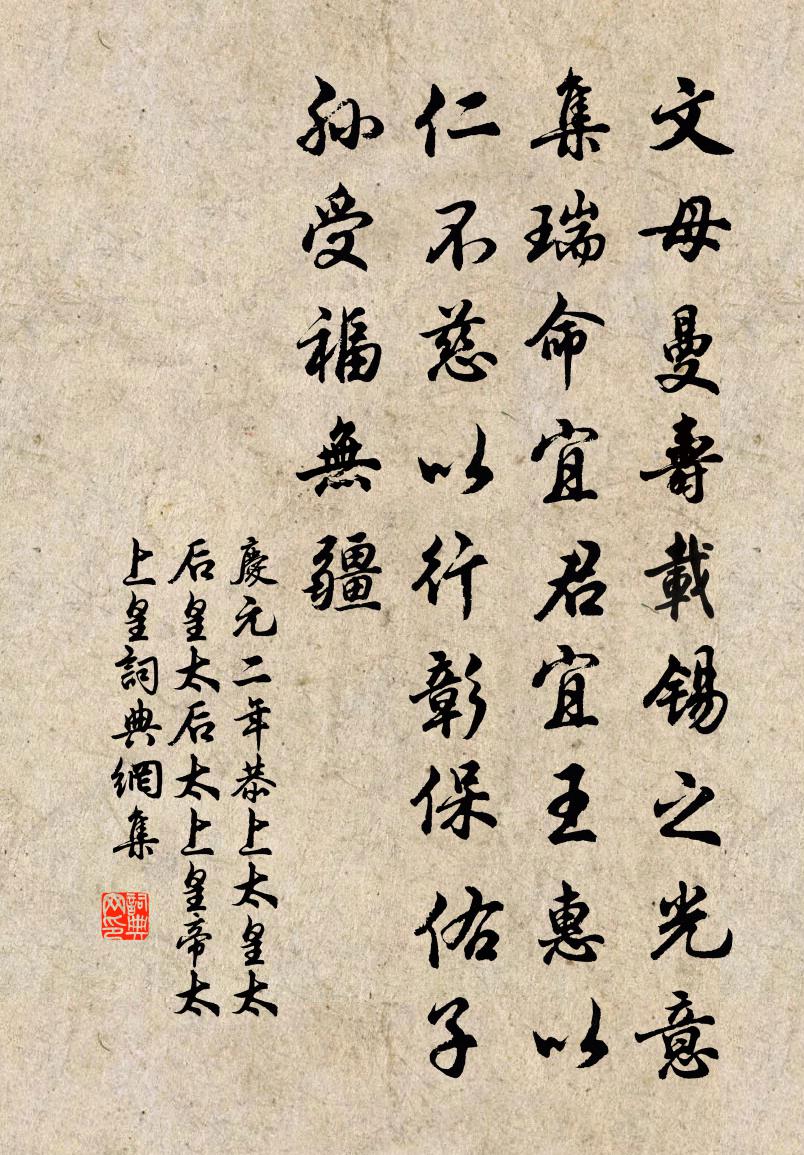 文母曼壽載錫之光意
集瑞命宜君宜王惠以
仁不慈以行彰保佑子
孫受福無疆
慶元二年恭上太皇太
后皇太后太上皇帝太
上皇詞典網集
詞典
网印